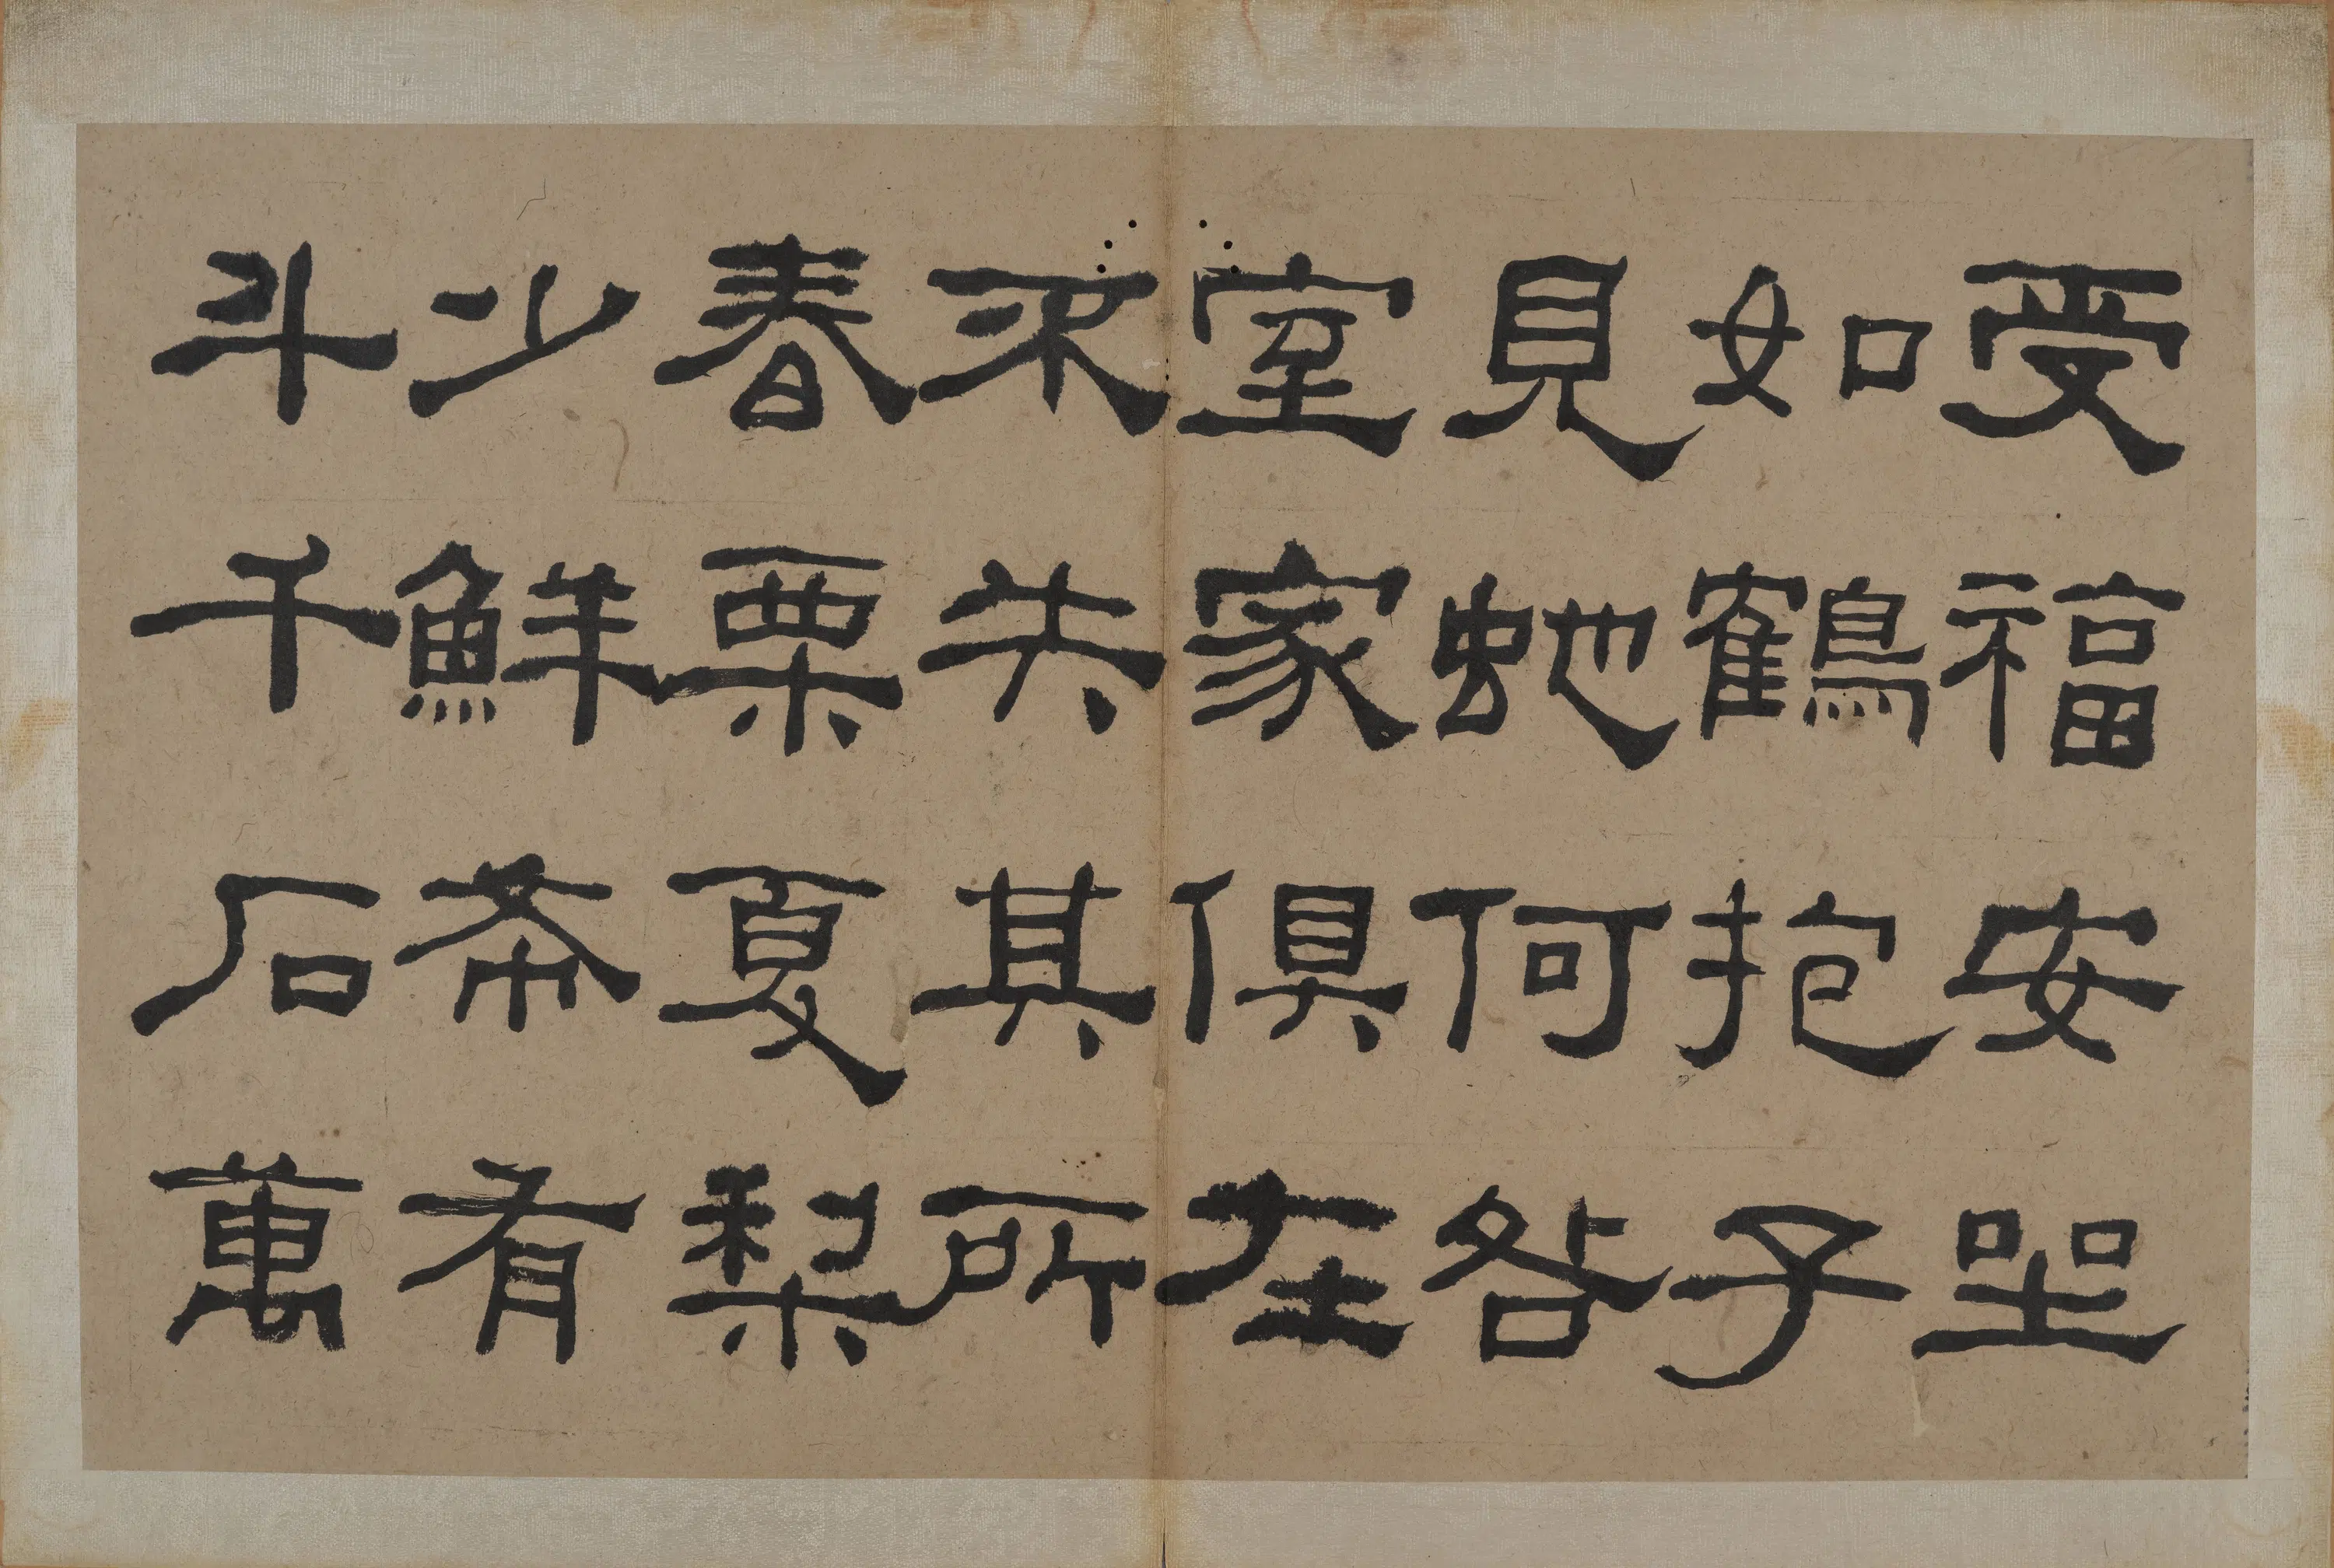 受福安坐
如鶴抱子
見蛇何咎
室家俱在
不失其所
春栗夏梨
少鮮希有
斗千石萬